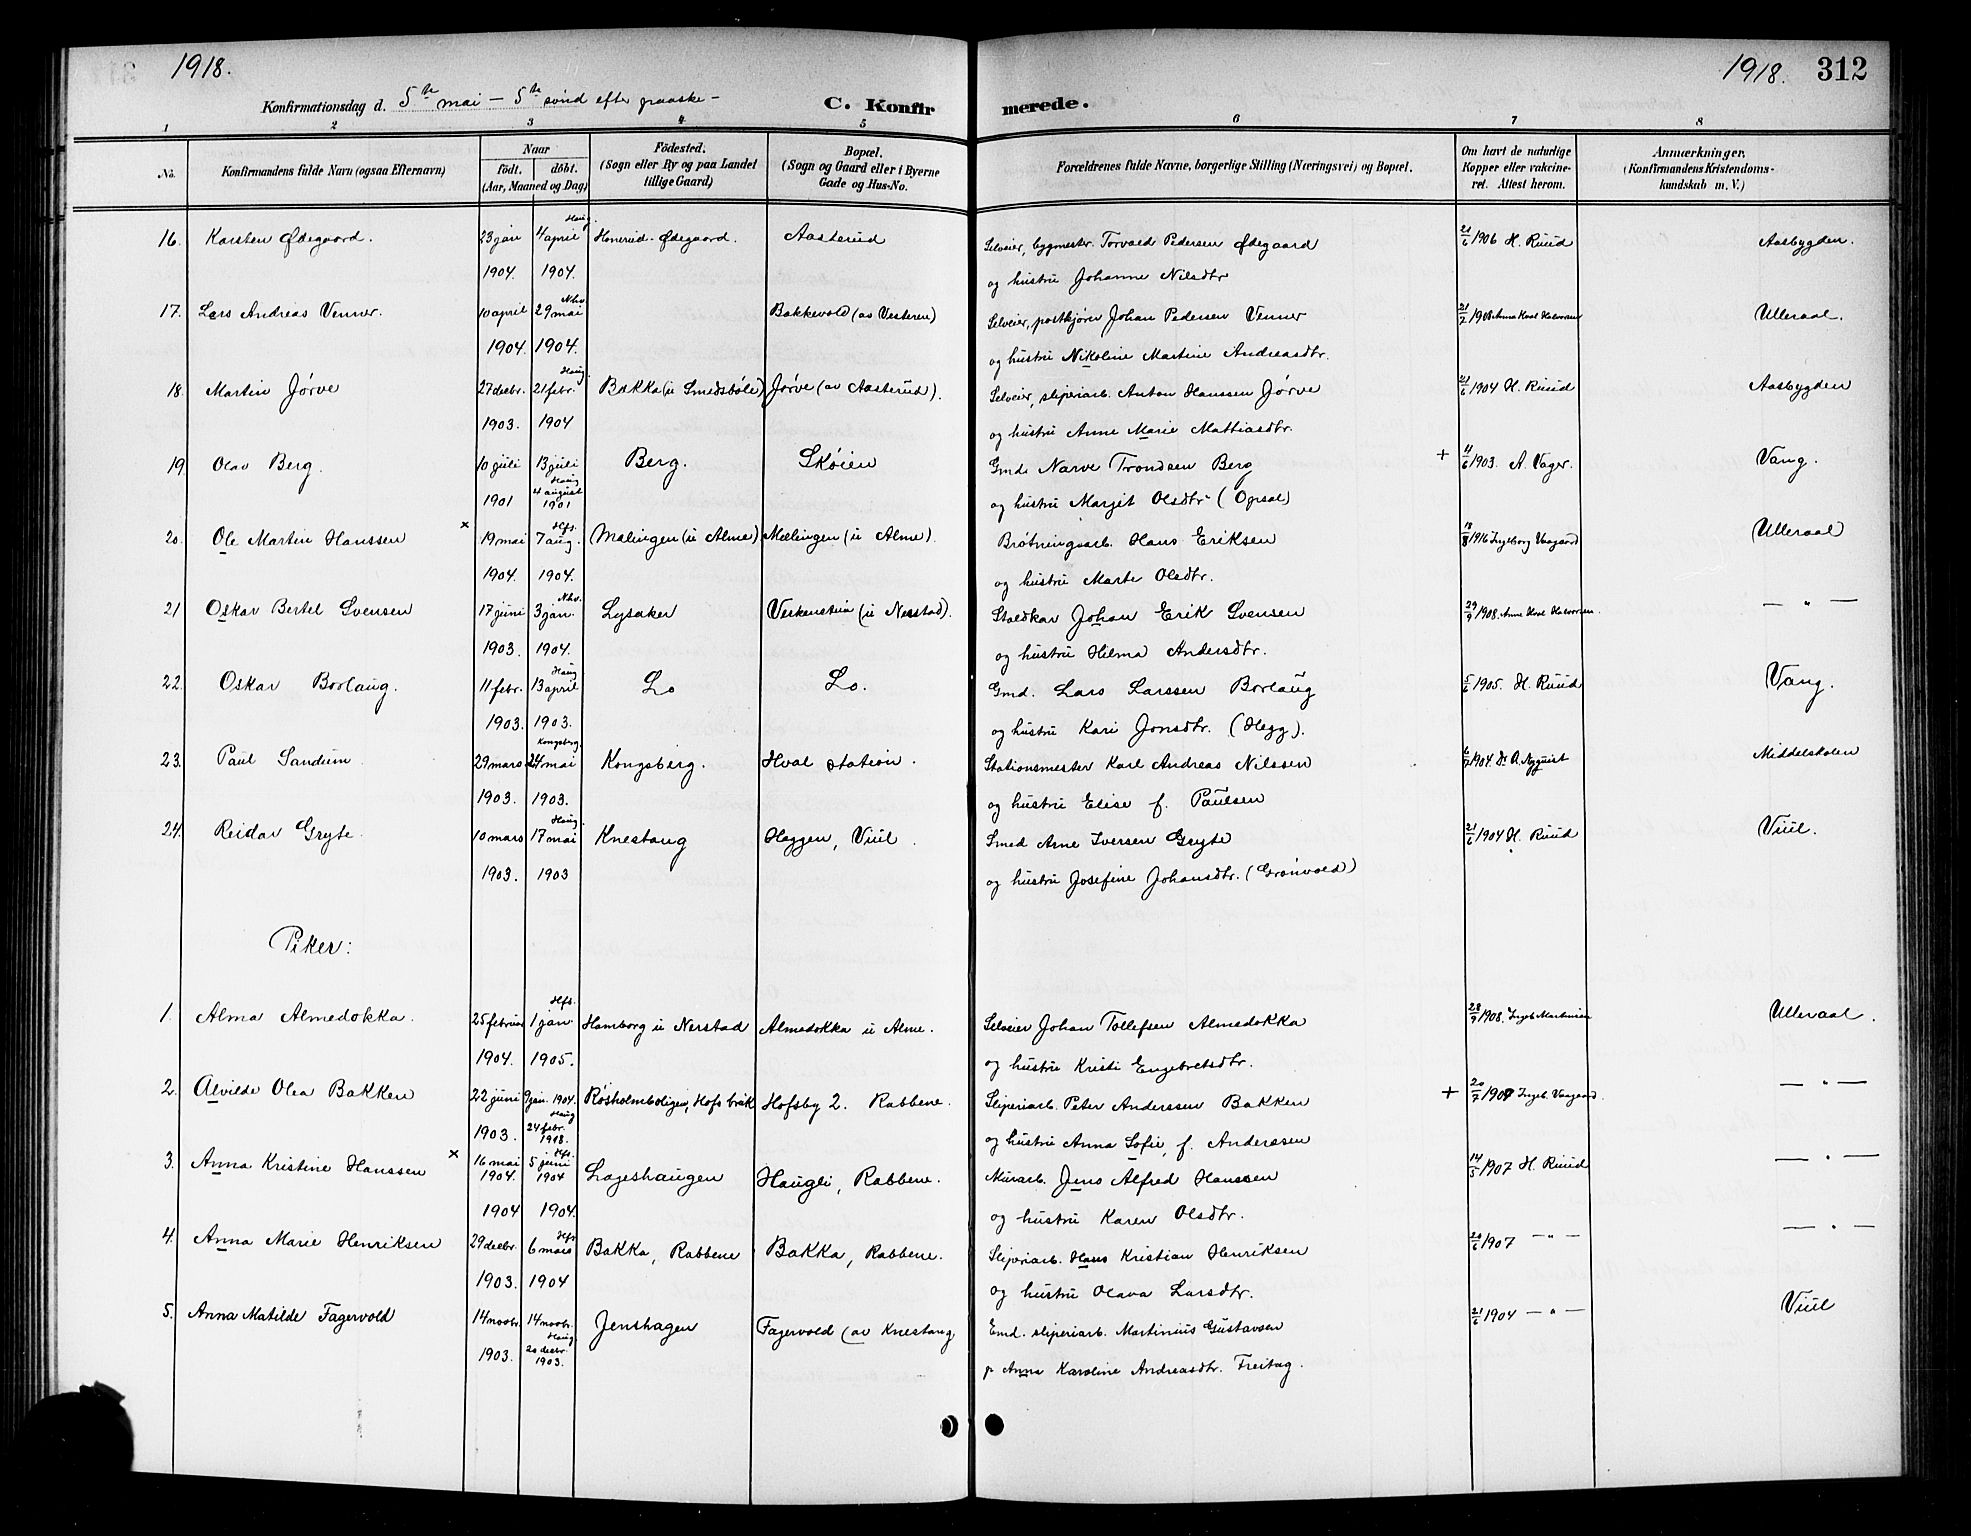 1918.
Konfirmationsdag d. 5te mai – 5te sønd efter paaske –
C. Konfirmerede.
1918. 312
1 2 3 4 5 6 7 8
No. Konfirmandens fulde Navn (ogsaa Efternavn) Naar født. døbt. (Aar, Maaned og Dag) Fødested. (Sogn eller By og paa Landet tillige Gaard) Bopæl. (Sogn og Gaard eller i Byerne Gade og Hus-No. Forældrenes fulde Navne, borgerlige Stilling (Næringsvei) og Bopæl. Om havt de naturlige Kopper eller vakcineret. Attest herom. Anmærkninger, (Konfirmandens Kristendomskundskab m. V.)
Haug.
16. Karsten Ødegaard. 23 jan 4 april Honerud-Ødegaard. Aasterud Selveier, bygmester Torvald Pedersen Ødegaard 21/6 1906 H. Ruud Aasbygden.
1904. 1904. og hustru Johanne Nilsdtr
Nhv.
17. Lars Andreas Venner. 10 april 29 mai Bakkevold (av Vesteren) Selveier, postkjører Johan Pedersen Venner 21/7 1908 Anne Hval Halvorsen Ulleraal.
1904. 1904. og hustru Nikoline Martine Andreasdtr.
Haug.
18. Martin Jørve 27 decbr. 21 febr. Bakka (u Smedsbøle) Jørve (av Aasterud). Selveier, sliperiarb. Anton Hanssen Jørve 21/6 1904 H. Ruud Aasbygden
1903. 1904 og hustru Anne Marie Mattiasdtr.
19 Olav Berg. 10 juli 13 juli Berg. Skøien Gmd. Narve Trondsen Berg + 11/6 1903. A. Vager. Vang.
1901 Haug 4 august 1901 og hustru Margit Olsdtr (Opsal)
Hfs.
20. Ole Martin Hanssen × 19 mai 7 aug. Mælingen (u Alme) Mælingen (u Alme). Brøtningsarb. Hans Eriksen 18/8 1916 Ingeborg Vaagaard (Ulleraal)
1904. 1904. og hustru Marte Olsdtr.
Nhv.
21 Oskar Bertel Svensen 17 juni 3 jan. Lysaker Veskenstua (u Nerstad). Staldkar Johan Erik Svensen 29/9 1908. Anne Hval Halvorsen. — " —
1903. 1904. og hustru Hilma Andersdtr.
Haug
22. Oskar Borlaug. 11 febr. 13 april Lo Lo. Gmd. Lars Larssen Borlaug 5/6 1905. H. Ruud Vang.
1903. 1903. og hustru Kari Jonsdtr. (Hegg).
Kongsberg.
23. Paul Sandum 29 mars 24 mai Kongsberg. Hval station. Stationsmester Karl Andreas Nilssen 6/7 1904. Dr. A. Nyquist Middelskolen
1903. 1903. og hustru Elise f. Paulsen
Haug.
24. Reidar Gryte. 10 mars 17 mai Knestang Heggen, Viul. Smed Arne Iversen Gryte 21/6 1904 H. Ruud Viul.
1903. 1903 og hustru Josefine Johansdtr. (Grønvold)
Piker:
Hfs.
1. Alma Almedokka. 25 februar 1 jan. Hamborg u Nerstad Almedokka u Alme. Selveier Johan Tollefsen Almedokka 28/9 1908. Ingeb. Martinsen Ulleraal.
1904. 1905. og hustru Kristi Engebretsdtr.
2. Alvilde Olea Bakken 22 juni 9 jan. 1904. Røsholmboligen, Hofs bruk Hofsby 2. Rabbene. Sliperiarb. Peter Anderssen Bakken + 20/7 1907 Ingeb. Vaagaard. — " —
1903. Haug 24 febr. 1918. og hustru Anna Sofie, f. Anderssen
Hfs.
3. Anna Kristine Hanssen × 16 mai 1904. 5 juni 1904 Lageshaugen Haugli, Rabbene. Murarb. Jens Alfred Hanssen 14/5 1907 H. Ruud — " —
1904 1904. og hustru Karen Olsdtr.
Hfs
4. Anna Marie Henriksen 29 decbr. 6 mars Bakka, Rabbene Bakka, Rabbene. Sliperiarb. Hans Kristian Henriksen 20/6 1907 — " — — " —
1903. 1904 og hustru Olava Larsdtr.
5. Anna Matilde Fagervold 14 novbr. 14 novbr. Jenshagen Fagervold (av Knestang Emd. sliperiarb. Martinius Gustavsen 21/6 1904 — " — Viul
1903. Haug 20 decbr. 1903. p Anna Karoline Andreasdtr. Freitag.